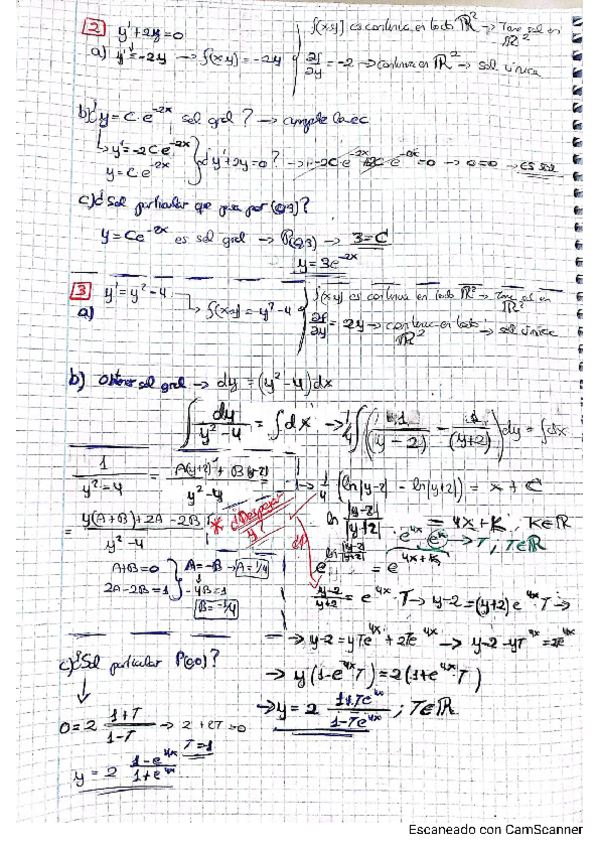 2 y' + 2y = 0
a) y' = -2y → f(x,y) = -2y
f(x,y) es continua en todo ℝ² → Tiene sol en ℝ²
∂f/∂y = -2 → continua en ℝ² → sol única
b) ¿ y = C·e^{-2x} sol gral? → cumple la ec
↳ y' = -2Ce^{-2x}
y = C·e^{-2x}
¿ y' + 2y = 0? → -2C·e^{-2x} 2C·e^{-2x} = 0 → 0 = 0 → es sol
c) ¿ Sol particular que pasa por (0,3)?
y = Ce^{-2x} es sol gral → P(0,3) → 3 = C
y = 3e^{-2x}
3 y' = y² - 4
a) ↳ f(x,y) = y² - 4
f(x,y) es continua en todo ℝ² → Tiene sol en ℝ²
∂f/∂y = 2y → continua en todo ℝ² → sol única
b) Obtener sol gral → dy = (y² - 4) dx
∫ dy/(y² - 4) = ∫ dx → 1/4 ∫ (1/(y-2) - 1/(y+2)) dy = ∫ dx
1/(y² - 4) = (A(y+2) + B(y-2))/(y² - 4)
= (y(A+B) + 2A - 2B)/(y² - 4)
A+B = 0
2A - 2B = 1
A = -B → A = 1/4
-4B = 1
B = -1/4
* ¿Despejar y?
→ 1/4 (ln|y-2| - ln|y+2|) = x + C
ln |y-2|/|y+2| = 4x + K, K∈ℝ
e^{4x}·e^{K} → T, T∈ℝ
e^{ln |y-2|/|y+2|} = e^{4x+K}
(y-2)/(y+2) = e^{4x}·T → y-2 = (y+2) e^{4x}·T →
→ y-2 = yTe^{4x} + 2Te^{4x} → y-2-yTe^{4x} = 2Te^{4x}
→ y(1-e^{4x}T) = 2(1+e^{4x}T)
→ y = 2 (1+Te^{4x})/(1-Te^{4x}) ; T∈ℝ
c) ¿ Sol particular P(0,0)?
0 = 2 (1+T)/(1-T) → 2 + 2T = 0
T = 1
y = 2 (1-e^{4x})/(1+e^{4x})
Escaneado con CamScanner